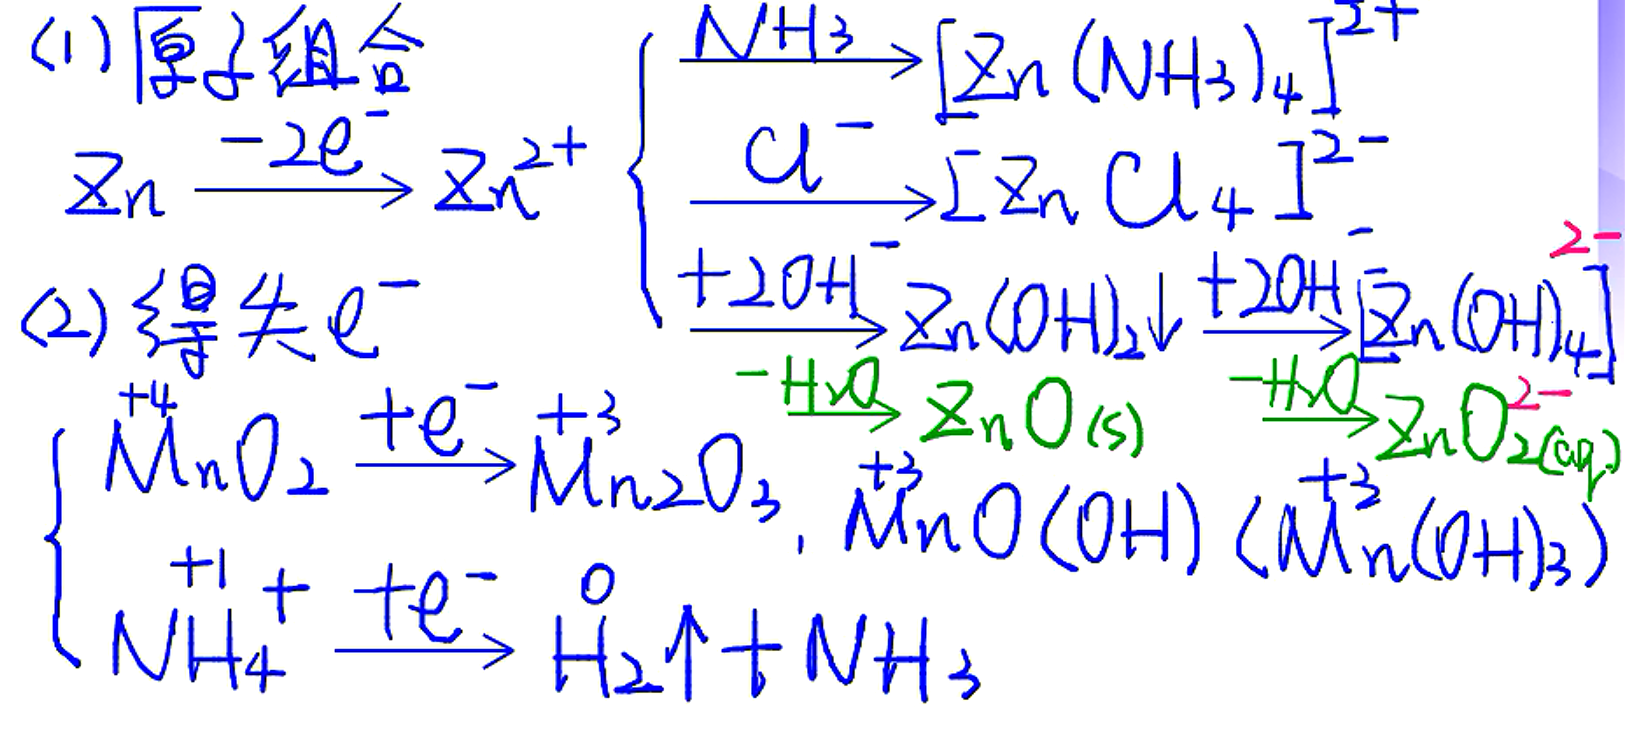 (1) 原子组合
Zn —-2e⁻→ Zn²⁺ { —NH₃→ [Zn(NH₃)₄]²⁺
—Cl⁻→ [ZnCl₄]²⁻
—+2OH⁻→ Zn(OH)₂↓ —+2OH⁻→ [Zn(OH)₄]²⁻
—-H₂O→ ZnO(s) —-H₂O→ ZnO₂²⁻(aq)
(2) 得失e⁻
{ +4 +3 +3 +3
MnO₂ —+e⁻→ Mn₂O₃, MnO(OH) (Mn(OH)₃)
+1 0
NH₄⁺ —+e⁻→ H₂↑+NH₃